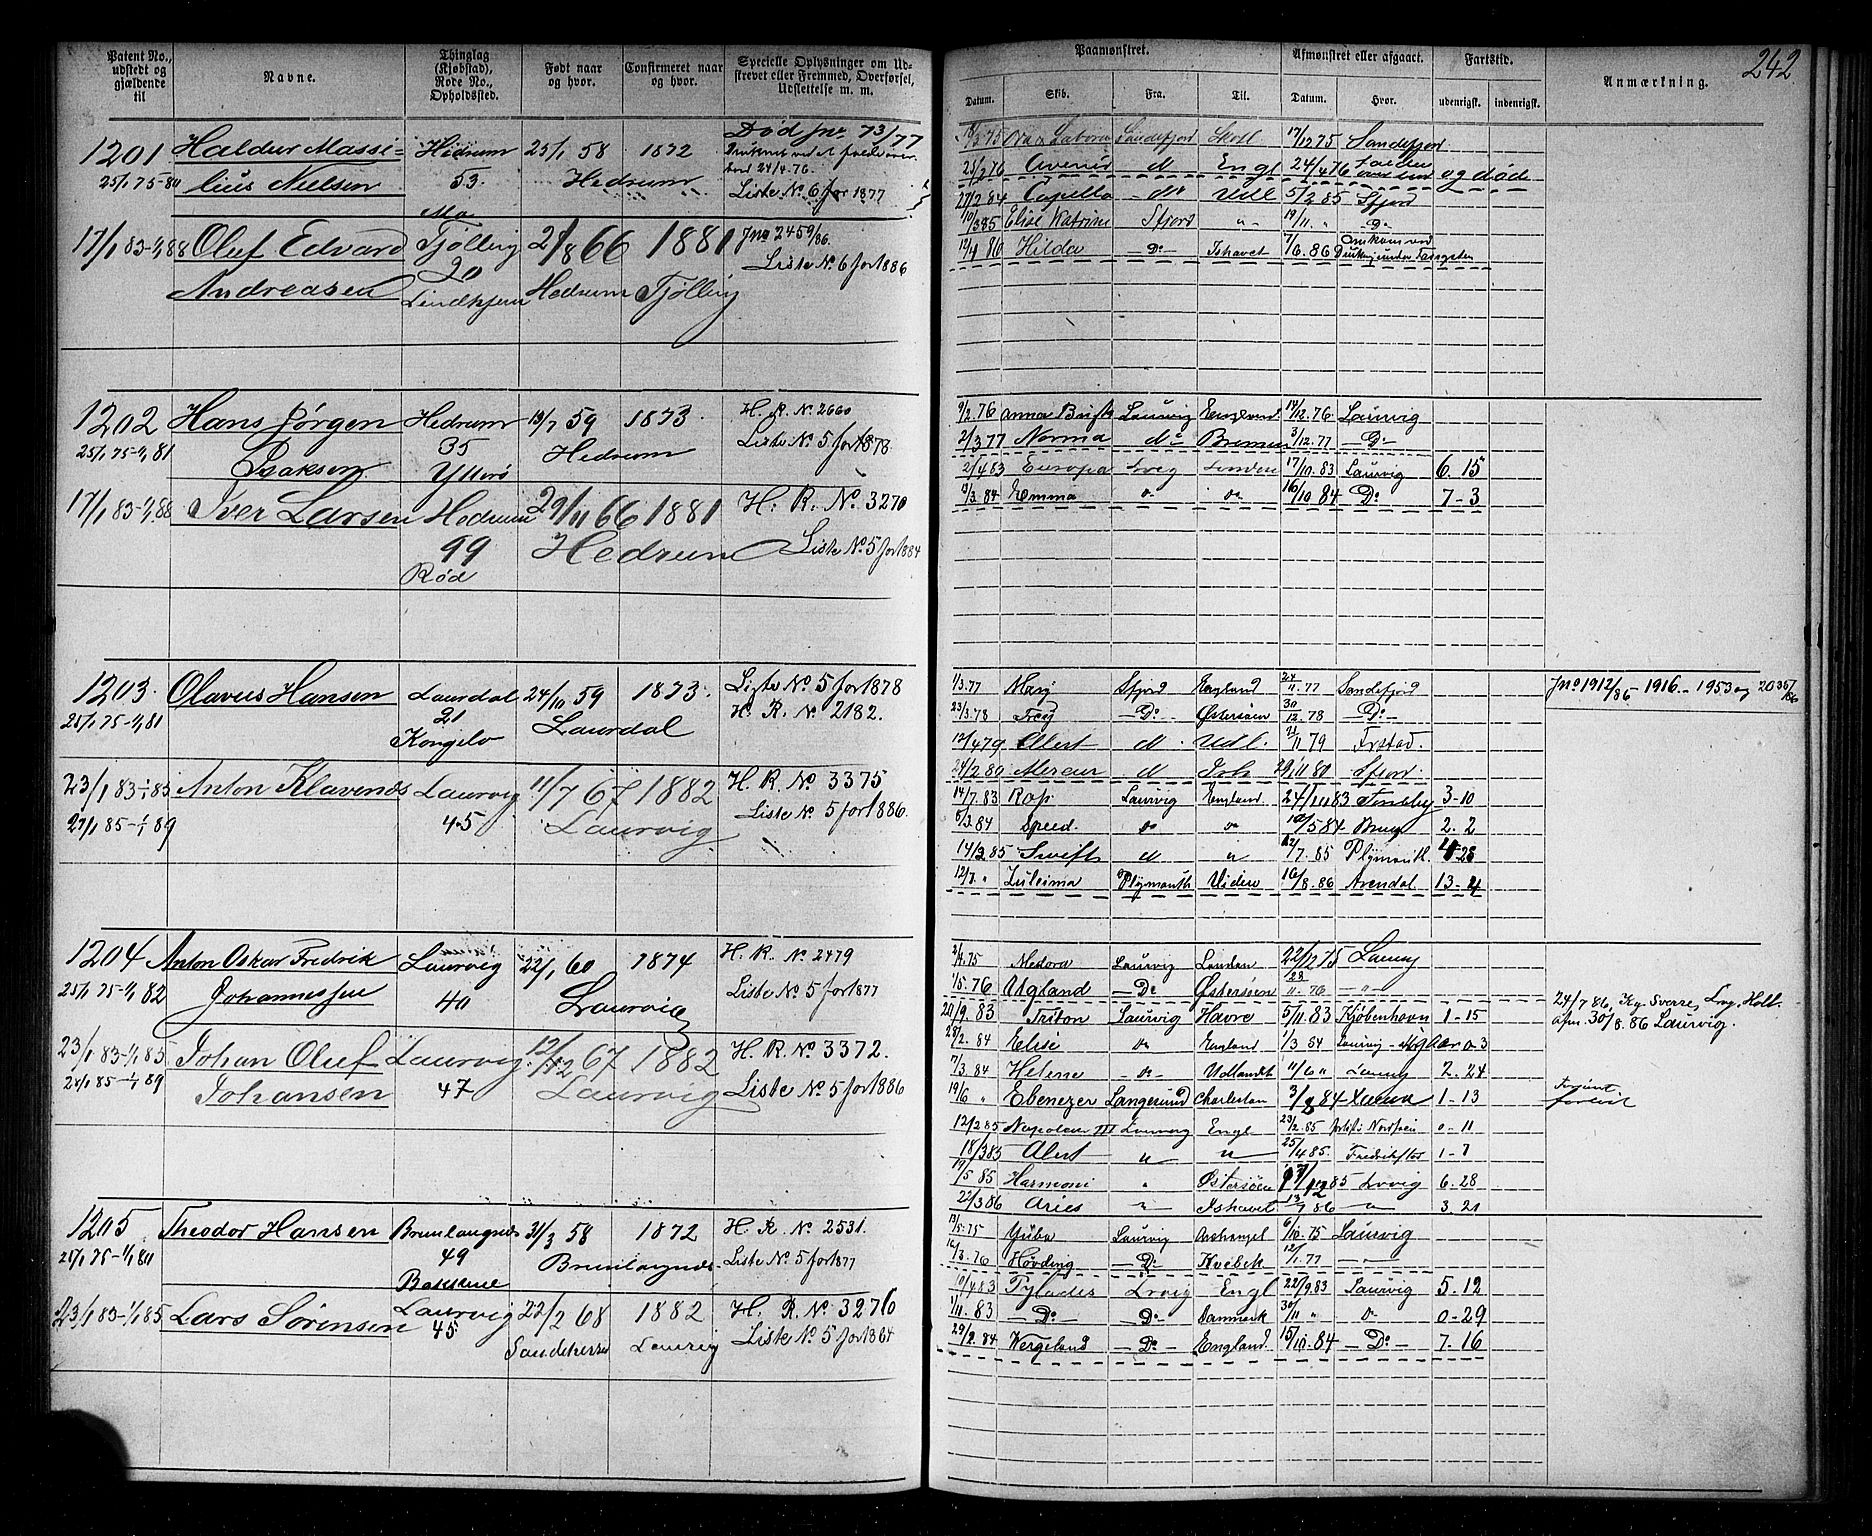 242
Patent No., udstedt og gjældende til
Navne.
Thinglag (Kjøbstad), Rode No., Opholdssted.
Født naar og hvor.
Confirmeret naar og hvor.
Specielle Oplysninger om Udskrevet eller Fremmed, Overførsel, Udslettelse m. m.
Paamønstret.
Afmønstret eller afgaaet.
Fartstid.
Anmærkning.
Datum. Skib. Fra. Til. Datum. Hvor. udenrigsk. indenrigsk.
1201 Haldur Massi= Hedrum 25/1 58 1872 Død jnr 73/77
25/1 75-80 lius Nielsen 53. Hedrum
Mo Liste No 6 for 1877
17/1 83-1/1 88 Oluf Edvard Tjølling 21/8 66 1881 Jno 2459/86.
20 Liste No 6 for 1886
Andreasen Lindhjem Hedrum Tjølling
Sandefjord Skotl 17/12 75 Sandefjord
Engl 24/4 76 og døde
27/2 84 Capella do Udl 5/2 85 Sfjord
10/3 85 Elise Katrine Sfjord " 19/11 " Do
12/4 86 Hilda Do Ishavet 7/6. 86
1202 Hans Jørgen Hedrum 13/7 59 1873. H. R. No 2660
25/1 75-1/1 81 Isaksen 35 Hedrum Liste No 5 for 1878
Ytterø
17/1 83-1/1 88 Iver Larsen Hedrum 29/11 66 1881 H. R. No 3270
99 Hedrum Liste No 5 for 1884
Rød
9/2. 76 Laurvig England 14/12. 76 Laurvig
2/3 77 Norma Do Bremen 3/12. 77 Do
2/4 83 Europa Lvig London 17/10. 83 Laurvig 6. 15
3/3. 84 Emma do do 16/10 84 Do 7-3
1203. Olavus Hansen Laurdal 24/10 59 1873. Liste No 5 for 1878
25/1 75-1/1 81 21 Laurdal H. R. No 2182.
23/1 83-1/1 85 Anton Klavends Laurvig 11/7 67 1882 H. R. No 3375
27/1 85-1/1 89 45 Laurvig Liste No 5 for 1886.
1/3. 77 Mary Sfjord England 24/11. 77 Sandefjord Jno 1912/86 - 1916 - 1953 og 2035/86
23/3. 78 Do Østersøen 30/12. 78 Do
12/4 79 Alert do Udl. 21/11 79
24/2 80 Mercur do 29/11 80 Sfjord
14/7. 83 Laurvig England 24/11 83 3-10
5/3. 84 Speed. do do 10/5 84 2. 2
14/3 85 Swift do " 12/7. 85 Plymouth. 4-28
12/7. " Zuleima Plymouth Viden 16/8. 86 Arendal 13-4
1204 Anton Oskar Fredrik Laurvig 22/1 60 1874 H. R. No 2479
25/1 75-1/1 82 Johannessen 40 Laurvig Liste No 5 for 1877
23/1 83-1/1 85 Johan Oluf Laurvig 12/12 67 1882 H. R. No 3372.
24/1 85-1/1 89 Johansen 47 Laurvig Liste No 5 for 1886
2/4. 75 Medora Laurvig London 22/12 75 Laurvig
1/5. 76 Ugland Do Østersøen 23/11. 76
20/9. 83 Triton Laurvig Havre 5/11. 83 Kjøbenhavn 1-15
28/2. 84 Elise do England
7/3. 84 Helene do Udlandet 11/6 " Laurvig 2-24
19/6 " Ebenezer Langesund Charlestan 1-13
12/2 85 Napoleon III Laurvig Engl 23/2. 85 Nordsøen 0-11
18/3 85 Alert " " 25/4 85. 1-7
19/5 85 Harmoni " Østersøen Lvig 6-28
22/3 86 Aries " Ishavet 86 3. 21
24/7 86, Kg Sverre, Lvg, Holl.
afm. 30/8. 86 Laurvig.
1205 Theodor Hansen Brunlangnæs 31/3 58 1872 H. R. No 2531.
25/1 75-1/1 80 49 Brunlangnæs. Liste No 5 for 1877
23/1 83-1/1 85 Lars Sørensen Laurvig 22/2 68 1882 H. R. No 3276
45. Laurvig Liste No 5 for 1884
13/5. 75 Yuba Laurvig Archangel 6/10. 75 Laurvig
16/3. 76 Høvding Do Kvebek 12/1. 77
10/4 83 Pylades Lrvig Engl 22/9. 83 Laurvig 5. 12
1/11. 83 Do Do Danmark 30/11 " do 0-29
29/2. 84 Wergeland Do England. 15/10. 84 Do 7-16